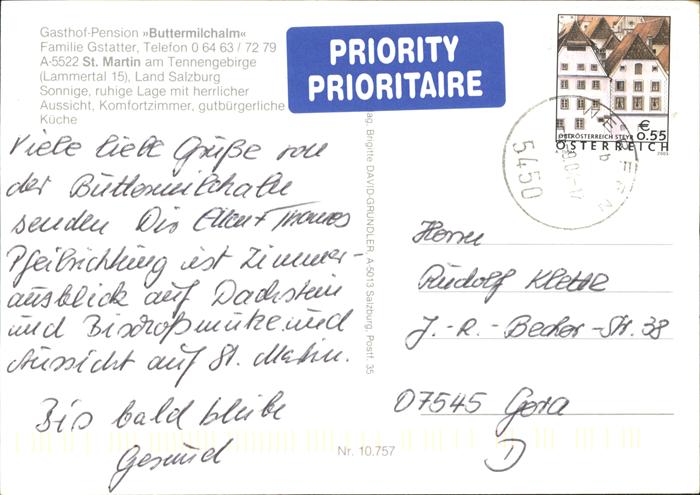 Gasthof-Pension »Buttermilchalm«
Familie Gstatter, Telefon 0 64 63 / 72 79
A-5522 St. Martin am Tennengebirge
(Lammertal 15), Land Salzburg
Sonnige, ruhige Lage mit herrlicher
Aussicht, Komfortzimmer, gutbürgerliche
Küche
PRIORITY
PRIORITAIRE
OBERÖSTERREICH STEYR
€
0.55
ÖSTERREICH
WERFEN
5450
Viele liebe Grüße von
der Buttermilchalm
senden Dir Ellen + Thomas
Pfeilrichtung ist Zimmer-
ausblick auf Dachstein
und Bischofsmütze und
Aussicht auf St. Martin.
Bis bald bleibe
Gesund
Brigitte DAVID-GRÜNDLER, A-5013 Salzburg, Postf. 35
Herrn
Rudolf Klette
J.-R.-Becher-Str. 38
07545 Gera
D
Nr. 10.757